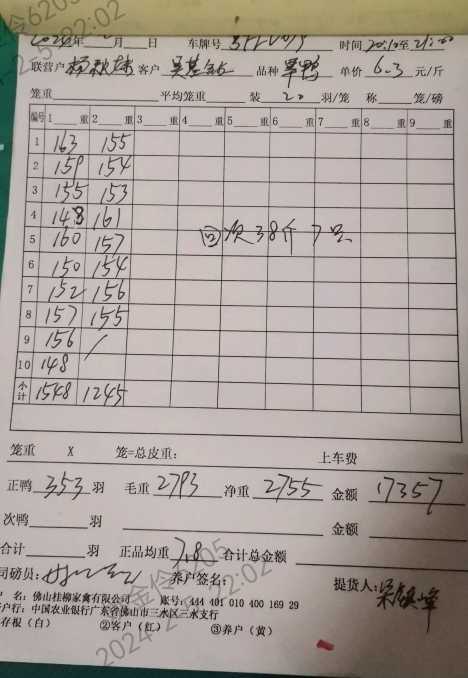 2024年 月 日 车牌号 时间 20:10至21:00
联营户 客户 品种 单价 6.3 元/斤
笼重 平均笼重 装 20 羽/笼 称 笼/磅
编号 1 重 2 重 3 重 4 重 5 重 6 重 7 重 8 重 9 重
1 163 155
2 159 154
3 155 153
4 148 161
5 160 157
回次38斤 7只
6 150 154
7 152 156
8 157 155
9 156 /
10 148
小计 1548 1245
笼重 X 笼=总皮重: 上车费
正鸭 353 羽 毛重 2793 净重 2755 金额 17357
次鸭 羽 金额
合计 羽 正品均重 7.8 合计总金额
司磅员: 养户签名: 提货人:
户 名: 佛山桂柳家禽有限公司 账号: 444 401 010 400 169 29
户行: 中国农业银行广东省佛山市三水区三水支行
存根(白) ②客户(红) ③养户(黄)
2024-2-5 22:02